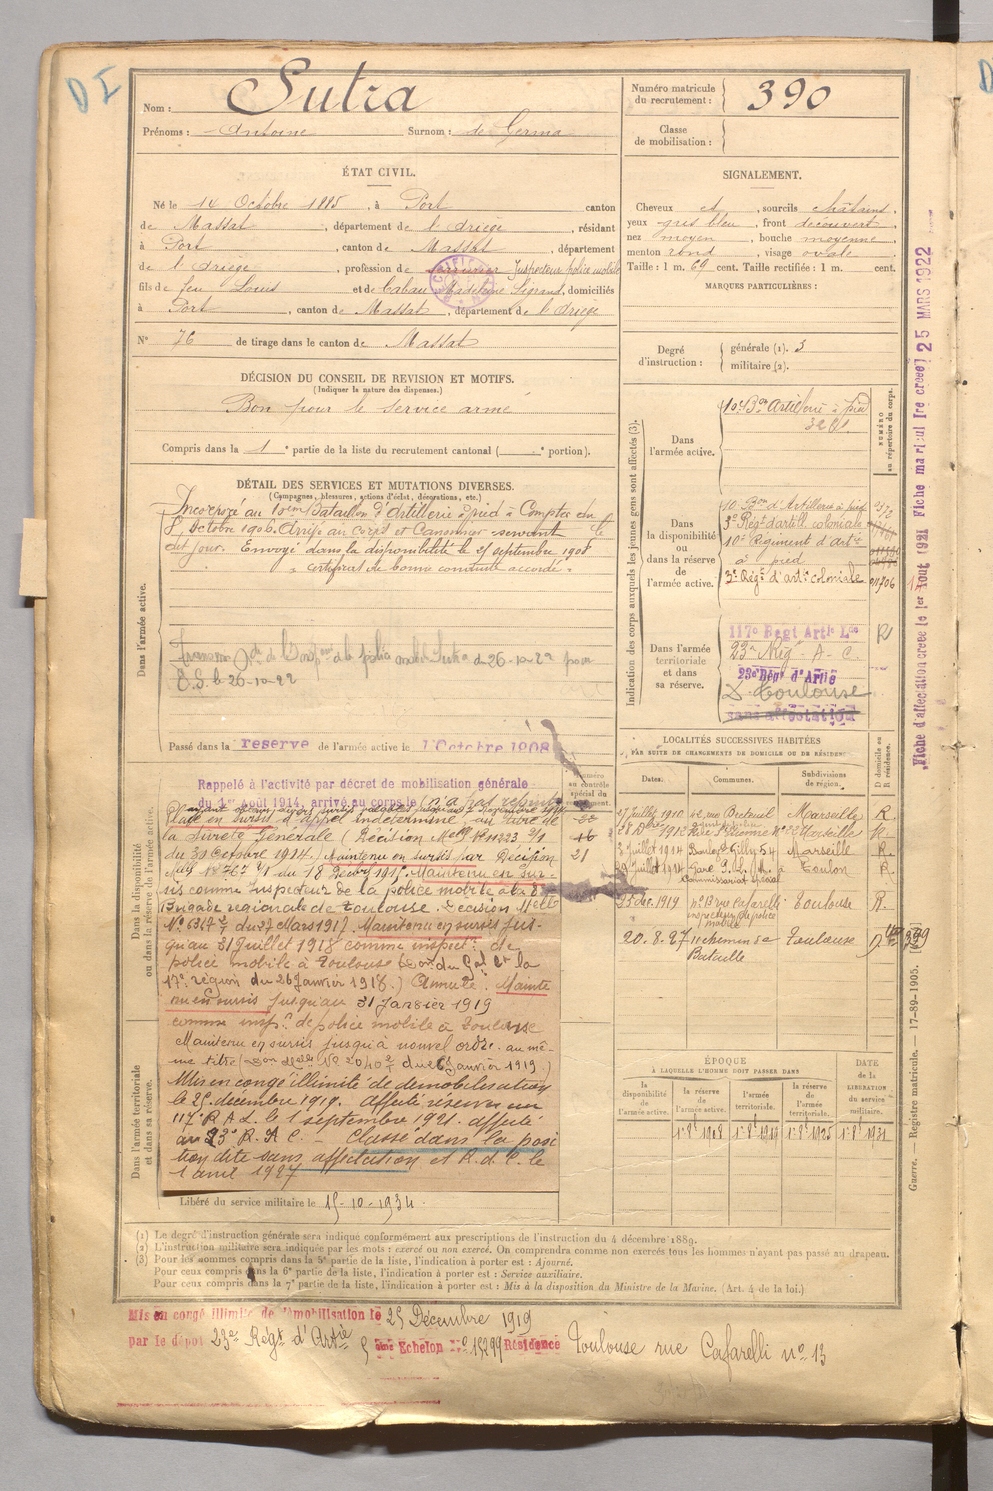 DI
Nom : Sutra
Prénoms : Antoine Surnom : de Germa
Numéro matricule du recrutement : 390
Classe de mobilisation :
ÉTAT CIVIL.
Né le 14 Octobre 1885, à Port canton
de Massat, département de l'Ariège, résidant
à Port, canton de Massat, département
de l'Ariège, profession de serrurier Inspecteur police mobile
fils de feu Louis et de Cabau Madeleine, domiciliés
à Port, canton de Massat, département de l'Ariège
N° 76 de tirage dans le canton de Massat
SIGNALEMENT.
Cheveux et, sourcils châtains,
yeux gris bleu, front découvert,
nez moyen, bouche moyenne,
menton rond, visage ovale.
Taille : 1 m. 69 cent. Taille rectifiée : 1 m. cent.
MARQUES PARTICULIÈRES :
Degré d'instruction : générale (1). 3
militaire (2).
DÉCISION DU CONSEIL DE REVISION ET MOTIFS.
(Indiquer la nature des dispenses.)
Bon pour le service armé
Compris dans la 1e partie de la liste du recrutement cantonal ( e portion).
DÉTAIL DES SERVICES ET MUTATIONS DIVERSES.
(Campagnes, blessures, actions d'éclat, décorations, etc.)
Dans l'armée active.
Incorporé au 10ème Bataillon d'Artillerie à pied à Compter du
8 Octobre 1906. Arrivé au corps et Canonnier servant le
dit jour. Envoyé dans la disponibilité le 25 septembre 1908
"certificat de bonne conduite accordé"
de la police mobile Sutra du 26-10-22 pour
E.S. le 26-10-22
Passé dans la reserve de l'armée active le 1 Octobre 1908
Dans la disponibilité ou dans la réserve de l'armée active.
Rappelé à l'activité par décret de mobilisation générale
du 1er Août 1914, arrivé au corps le (n'a pas rejoint
Placé en sursis d'appel indeterminé, au titre de
la Sureté Générale (Décision Melle N° 11223 2/1
du 30 Octobre 1914.) Maintenu en sursis par Décision
Mlle N° 767 1 du 18 1915. Maintenu en sur-
sis comme Inspecteur de la police mobile à la 8e
Brigade régionale de Toulouse. Décision Melle
N° 6347 du 27 Mars 1917. Maintenu en sursis jus-
qu'au 31 Juillet 1918 comme inspect. de
police mobile à Toulouse (Don du Gal Ct la
17e région du 26 Janvier 1918.) Annulé. Mainte
nu en sursis jusqu'au 31 Janvier 1919
comme insp. de police mobile à Toulouse
Maintenu en sursis jusqu'à nouvel ordre au mê-
me titre (Don Melle N° 2040 du 6 Janvier 1919.)
Dans l'armée territoriale et dans sa réserve.
Mis en congé illimité de démobilisation
le 25 décembre 1919. Affecté réserve au
117e R A L. le 1 septembre 1921. affecté
au 23e R. A C - Classé dans la posi
tion dite sans affectation et R.d.C. le
1 avril 1927
Libéré du service militaire le 15-10-1934
Indication des corps auxquels les jeunes gens sont affectés (3).
NUMÉRO au répertoire du corps.
Dans l'armée active.
10e Bon Artillerie à pied
Dans la disponibilité ou dans la réserve de l'armée active.
10e Bon d'Artillerie à pied
3e Régt d'artil. coloniale
10e Régiment d'Artie
à pied
3e Régt d'artie coloniale
Dans l'armée territoriale et dans sa réserve.
117e Regt Artie Lde R
23e Régt A. C.
23e Régt d'Artie
Toulouse
sans affectation
Fiche d'affectation créée le 1er Aout 1921 Fiche matricul 1re créée] 25 MARS 1922
LOCALITÉS SUCCESSIVES HABITÉES
PAR SUITE DE CHANGEMENTS DE DOMICILE OU DE RÉSIDENCE
Dates. Communes. Subdivisions de région. D domicile ou R résidence.
27 Juillet 1910 rue Breteuil Marseille R.
1912 Marseille R.
3 Juillet 1914 Gilly 54 Marseille R.
29 Juillet 1914 Gare P.L.M. à Commissariat spécial Toulon R.
25 dec. 1919 n° 13 rue Cafarelli inspecteur police mobile Toulouse R.
20.8.27 11 chemin de Bataille Toulouse
ÉPOQUE
À LAQUELLE L'HOMME DOIT PASSER DANS
la disponibilité de l'armée active. la réserve de l'armée active. l'armée territoriale. la réserve de l'armée territoriale.
DATE de la LIBÉRATION du service militaire.
Guerre. — Registre matricule. — 17-89-1905.
(1) Le degré d'instruction générale sera indiqué conformément aux prescriptions de l'instruction du 4 décembre 1889.
(2) L'instruction militaire sera indiquée par les mots : exercé ou non exercé. On comprendra comme non exercés tous les hommes n'ayant pas passé au drapeau.
(3) Pour les hommes compris dans la 5e partie de la liste, l'indication à porter est : Ajourné.
Pour ceux compris dans la 6e partie de la liste, l'indication à porter est : Service auxiliaire.
Pour ceux compris dans la 7e partie de la liste, l'indication à porter est : Mis à la disposition du Ministre de la Marine. (Art. 4 de la loi.)
Mis en congé illimité de démobilisation le 25 Décembre 1919
par le dépôt 23e Régt d'Artie 5 ème Echelon N° 15299 Résidence Toulouse rue Cafarelli n° 13